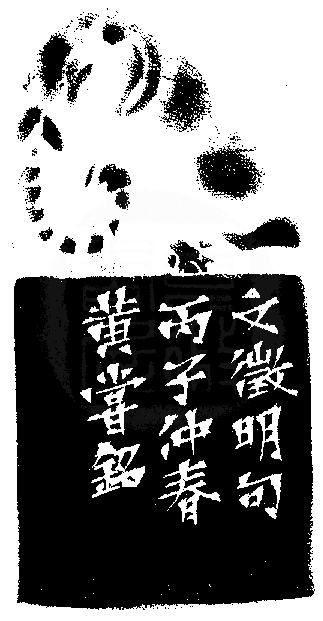 文徵明句
丙子仲春
黃嘗銘